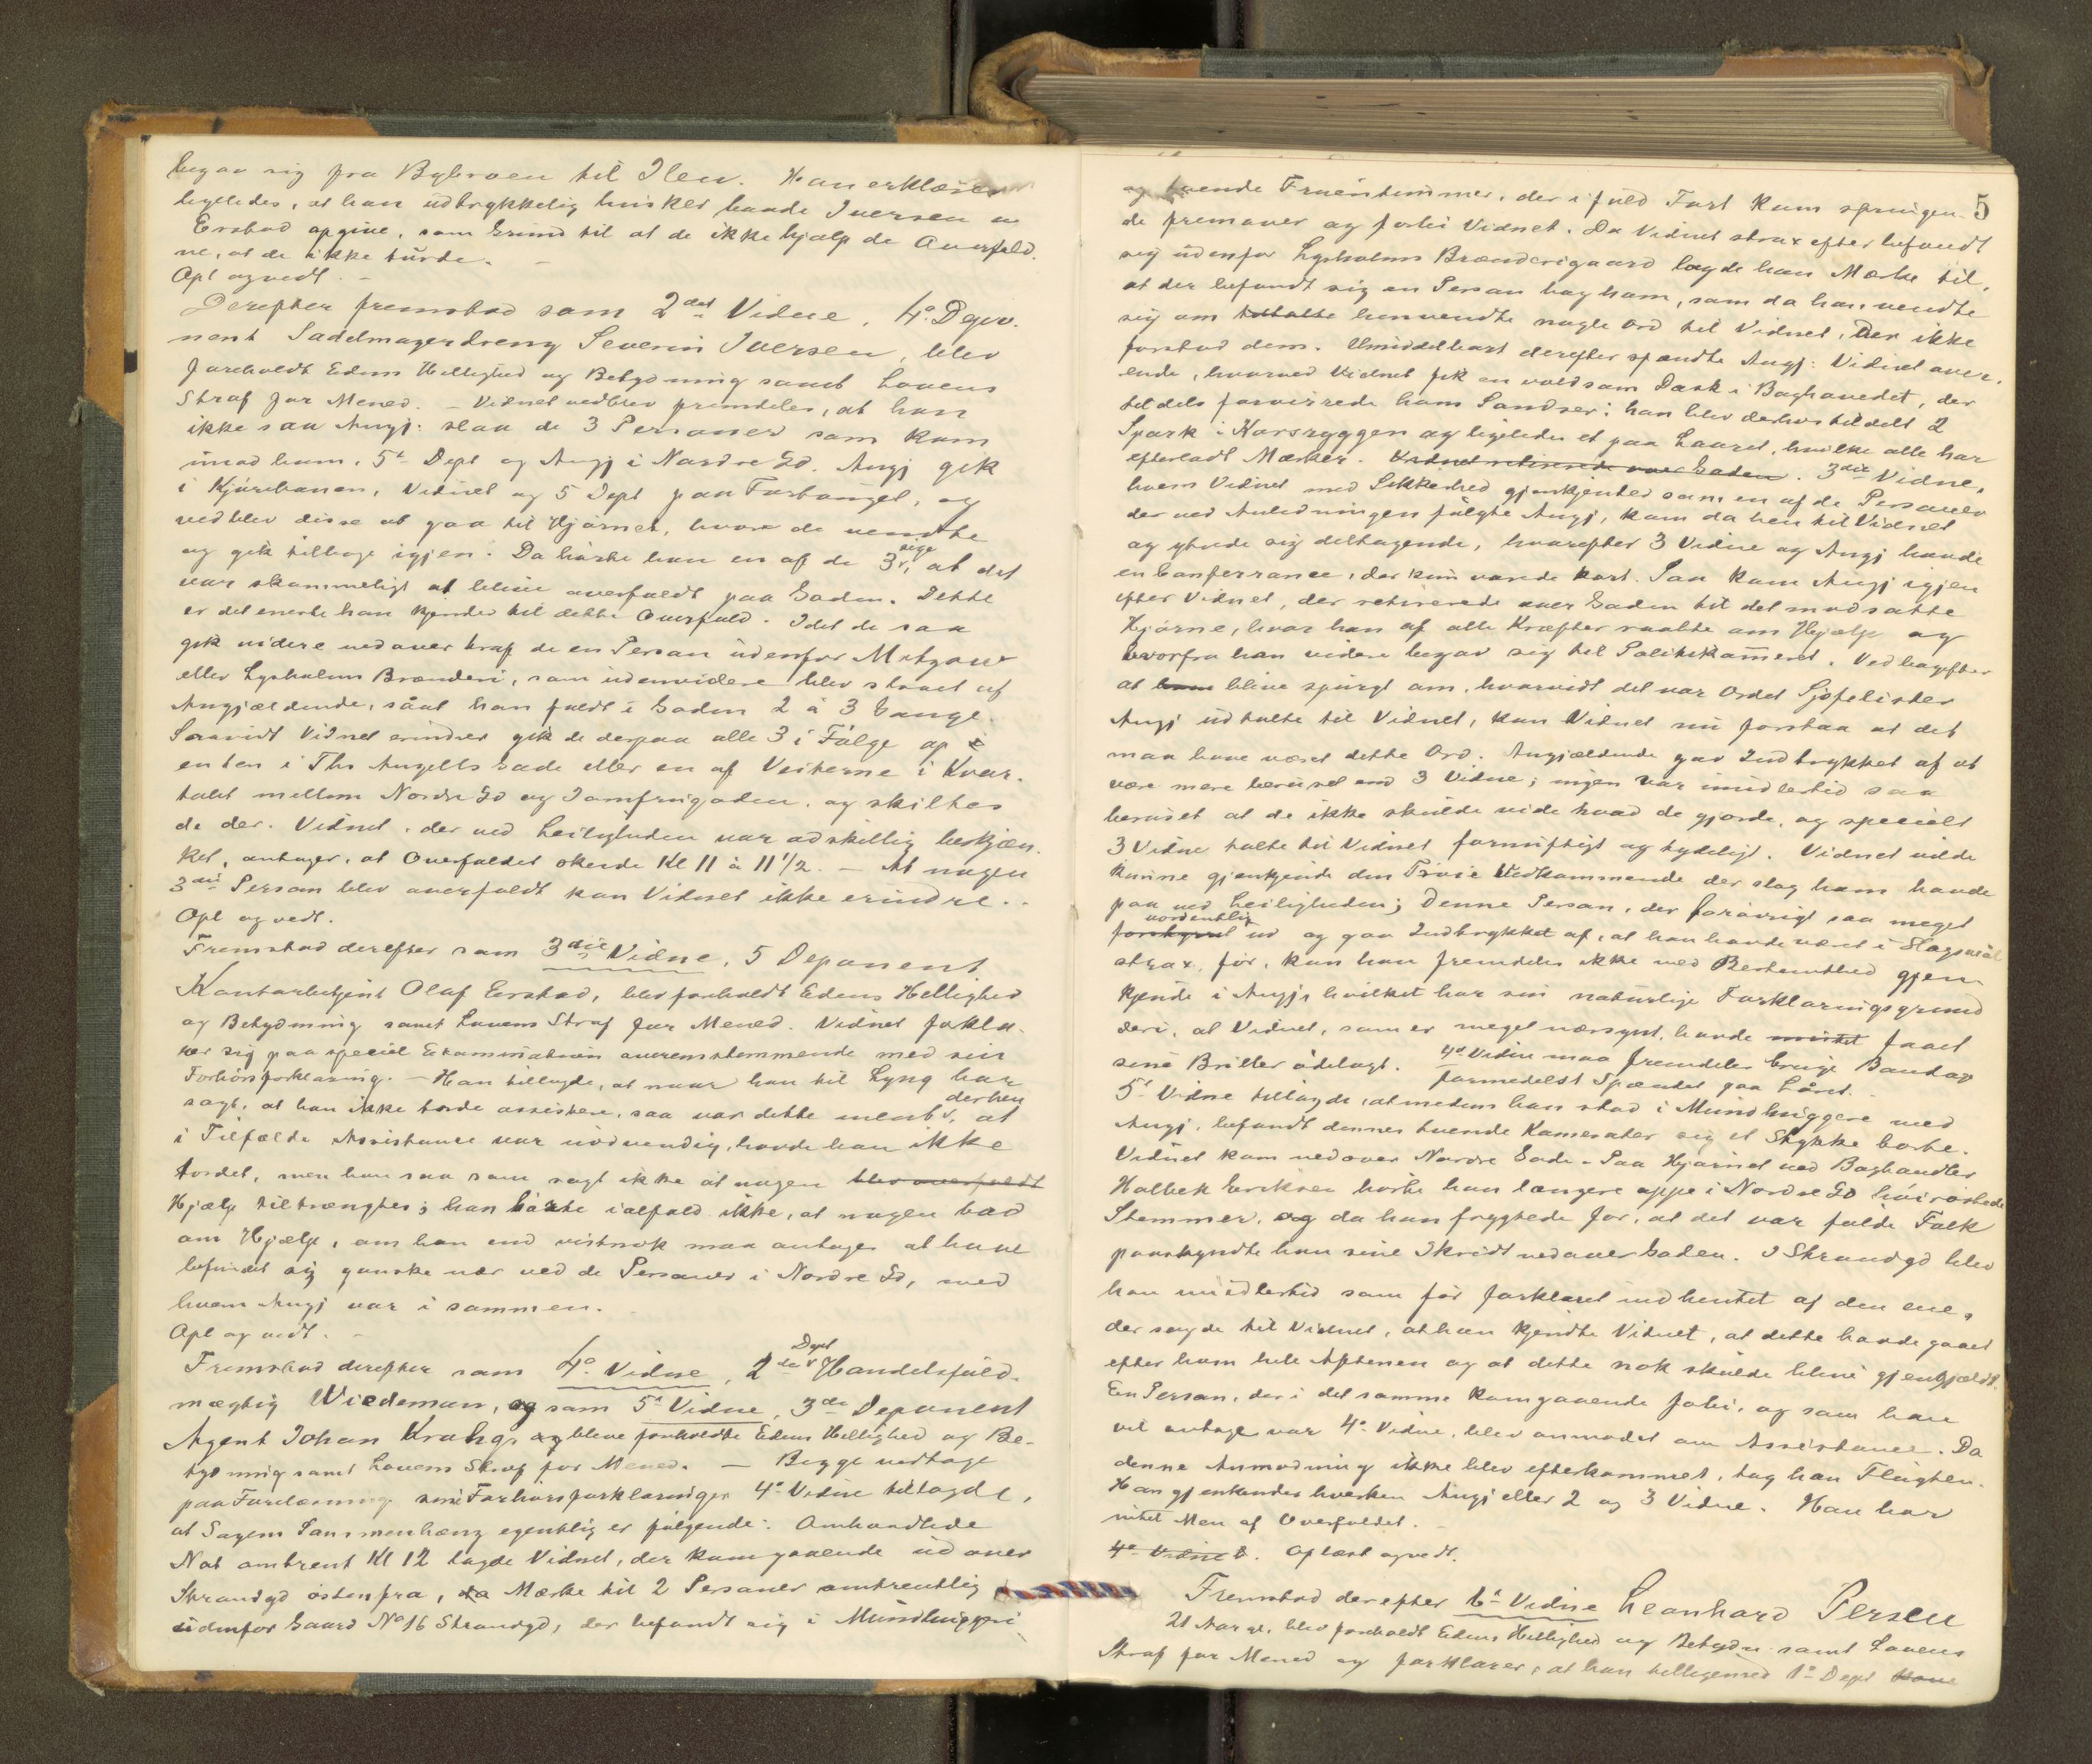 begav sig fra Bybroen til Ilen. Han erklærer
ligeledes, at han udtrykkelig husker baade Iversen og
Erstad opgive, som Grund til at de ikke hjalp de Overfald.
ne, at de ikke turde. —
Opl og vedt. —
Derefter fremstod som 2det Vidne, 4de Depo.
nent Sadelmagerdreng Severin Iversen, blev
foreholdt Edens Hellighed og Betydning samt Lovens
Straf for Mened. — Vidnet vedblev fremdeles, at han
ikke saa Angj: slaa de 3 Personer som kom
imod ham, 5t Dept og Angj i Nordre Gd. Angj gik
i Kjørebanen, Vidnet og 5 Dept paa Fortouget, og
vedblev disse at gaa til Hjørnet, hvor de vendte
og gik tilbage igjen. Da hørte han en af de 3 sige, at det
var skammeligt at blive overfaldt paa Gaden. Dette
er det eneste han kjender til dette Overfald. Idet de saa
gik videre nedover traf de en Person udenfor Matzow
eller Lysholms Brænderi, som udenvidere blev slaaet af
Angjældende, saa at han faldt i Gaden 2 à 3 Gange.
Saavidt Vidnet erindrer gik de derpaa alle 3 i Følge op
enten i Ths Angells Gade eller en af Veiterne i Kvar.
talet mellem Nordre Gd og Jomfrugaden, og skiltes
de der. Vidnet, der ved Leiligheden var adskillig beskjæn.
ket, antager, at Overfaldet skeede Kl 11 à 11 1/2. — At nogen
3die Person blev overfaldt kan Vidnet ikke erindre. —
Opl og vedt.
Fremstod derefter som 3die Vidne, 5 Deponent
Kontorbetjent Olaf Erstad, blev foreholdt Edens Hellighed
og Betydning samt Lovens Straf for Mened. Vidnet forkla-
rer sig paa speciel Examination overensstemmende med sin
Forhørsforklaring. — Han tillagde, at naar han til Lyng har
sagt, at han ikke torde assistere, saa var dette ment derhen, at
i Tilfælde Assistance var nødvendig, havde han ikke
tordet, men han saa som sagt ikke at nogen blev overfaldt
Hjælp tiltrængtes; han hørte ialfald ikke, at nogen bad
om Hjælp, om han end vistnok maa antages at have
befundet sig ganske nær ved de Personer i Nordre Gd, med
hvem Angj var i sammen.
Opl og vedt. —
Fremstod derefter som 4de Vidne, 2det Dept Handelsfuld.
mægtig Wiedeman, og som 5te Vidne, 3die Deponent
Agent Johan Krohg, og bleve foreholdte Edens Hellighed og Be-
tydning samt Lovens Straf for Mened. — Begge vedtage
paa Forelæsning sine Forhørsforklaringer. 4de Vidne tillagde,
at Sagens Sammenhæng egentlig er følgende: Omhandlede
Nat omtrent Kl 12 lagde Vidnet, der kom gaaende ud over
Strandgd østenfra, da Mærke til 2 Personer omtrentlig
udenfor Gaard No 16 Strandgd, der befandt sig i Mundhuggeri
5
og tvende Fruentimmer, der i fuld Fart kom springen-
de fremover og forbi Vidnet. Da Vidnet strax efter befandt
sig udenfor Lysholms Brænderigaard lagde han Mærke til,
at der befandt sig en Person bag ham, som da han vendte
sig om henvendte nogle Ord til Vidnet, der ikke
forstod dem. Umiddelbart derefter spændte Angj: Vidnet over.
ende, hvorved Vidnet fik en voldsom Dask i Baghovedet, der
tildels forvirrede hans Sandser; han blev derhos tildelt 2
Spark i Korsryggen og ligeledes et paa Laaret, hvilke alle har
efterladt Mærker. Vidnet retirerede over Gaden. 3die Vidne,
hvem Vidnet med Sikkerhed gjenkjender som en af de Personer
der ved Anledningen fulgte Angj, kom da hen til Vidnet
og ytrede sig deltagende, hvorefter 3 Vidne og Angj havde
en Conferrance, der kun varede kort. Saa kom Angj igjen
efter Vidnet, der retirerede over Gaden til det modsatte
Hjørne, hvor han af alle Kræfter raabte om Hjælp og
hvorfra han videre begav sig til Politikammeret. Ved bagefter
at blive spurgt om, hvorvidt det var Ordet Sjofelister
Angj udtalte til Vidnet, kan Vidnet nu forstaa at det
maa have været dette Ord. Angjældende gav Indtrykket af at
være mere beruset end 3 Vidne; ingen var imidlertid saa
beruset at de ikke skulde vide hvad de gjorde, og specielt
3 Vidne talte til Vidnet fornuftigt og tydeligt. Vidnet vilde
kunne gjenkjende den Trøie Vedkommende der slog ham havde
paa ved Leiligheden; Denne Person, der forøvrigt saa meget
forstyrret uordentlig ud og gav Indtrykket af, at han havde været i Slagsmål
strax før, kan han fremdeles ikke med Bestemthed gjen
kjende i Angj, hvilket har sin naturlige Forklaringsgrund
deri, at Vidnet, som er meget nærsynt, havde mistet faaet
sine Briller ødelagt. 4de Vidne maa fremdeles bruge Bandage
formedelst Spændet paa Låret. —
5te Vidne tillagde, at medens han stod i Mundhuggere med
Angj, befandt dennes tvende Kamerater sig et Stykke borte.
Vidnet kom nedover Nordre Gade. Paa Hjørnet ved Boghandler
Holbek Eriksen hørte han længere oppe i Nordre Gd høirøstede
Stemmer, og da han frygtede for, at det var fulde Folk
paaskyndte han sine Skridt nedover Gaden. I Strandgd blev
han imidlertid som før forklaret indhentet af den ene,
der sagde til Vidnet, at han kjendte Vidnet, at dette havde gaaet
efter ham hele Aftenen og at dette nok skulde blive gjengjældt.
En Person, der i det samme kom gaaende forbi, og som han
vil antage var 4de Vidne, blev anmodet om Assistance. Da
denne Anmodning ikke blev efterkommet, tog han Flugten.
Han gjenkjender hverken Angj eller 2 og 3 Vidne. Han har
intet Men af Overfaldet. —
4de Vidnet. Oplæst og vedt.
Fremstod derefter 6te Vidne Leonhard Persen
21 Aar gl, blev foreholdt Edens Hellighed og Betydn. samt Lovens
Straf for Mened og forklarer, at han tilligemed 1ste Dept